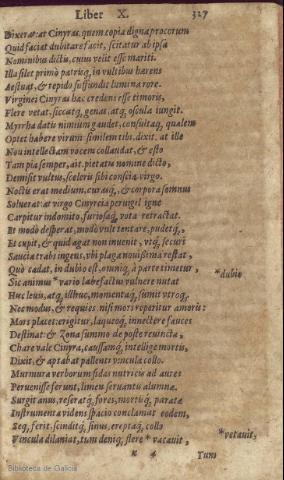 Liber X. 327
Dixerat: at Cinyras, quem copia digna procorum
Quid faciat dubitare facit, scitatur ab ipsa
Nominibus dictis, cuius velit esse mariti.
Illa silet primò, patriisq, in vultibus hærens
Aestuat, & tepido suffundit lumina rore.
Virginei Cinyras hæc credens esse timoris,
Flere vetat, siccatq, genas, atq, oscula iungit.
Myrrha datis nimium gaudet, consultaq, qualem
Optet habere virum: similem tibi, dixit. at ille
Non intellectam vocem collaudat, & esto
Tam pia semper, ait. pietatis nomine dicto,
Demisit vultus, sceleris sibi conscia virgo.
Noctis erat medium, curasq, & corpora somnus
Soluerat: at virgo Cinyreia peruigil igne
Carpitur indomito, furiosaq, vota retractat.
Et modò desperat, modò vult tentare, pudetq,
Et cupit, & quid agat non inuenit, vtq, securi
Saucia trabs ingens, vbi plaga nouissima restat,
Quò cadat, in dubio est, omniq, à parte timetur,
Sic animus * vario labefactus vulnere nutat *dubio
Huc leuis, atq, illhuc, momentaq, sumit vtroq,
Nec modus, & requies, nisi mors reperitur amoris:
Mors placet: erigitur, laqueoq, innectere fauces
Destinat: & Zona summo de poste reuincta,
Chare vale Cinyra, caussamq, intellige mortis,
Dixit, & aptabat pallenti vincula collo.
Murmura verborum fidas nutricis ad aures
Peruenisse ferunt, limen seruantis alumnæ.
Surgit anus, reseratq, fores, mortisq, paratæ
Instrumenta videns spacio conclamat eodem,
Seq, ferit, scinditq, sinus, ereptaq, collo
Vincula dilaniat, tum deniq, flere * vacauit, *vetauit,
Tum
Biblioteca de Galicia